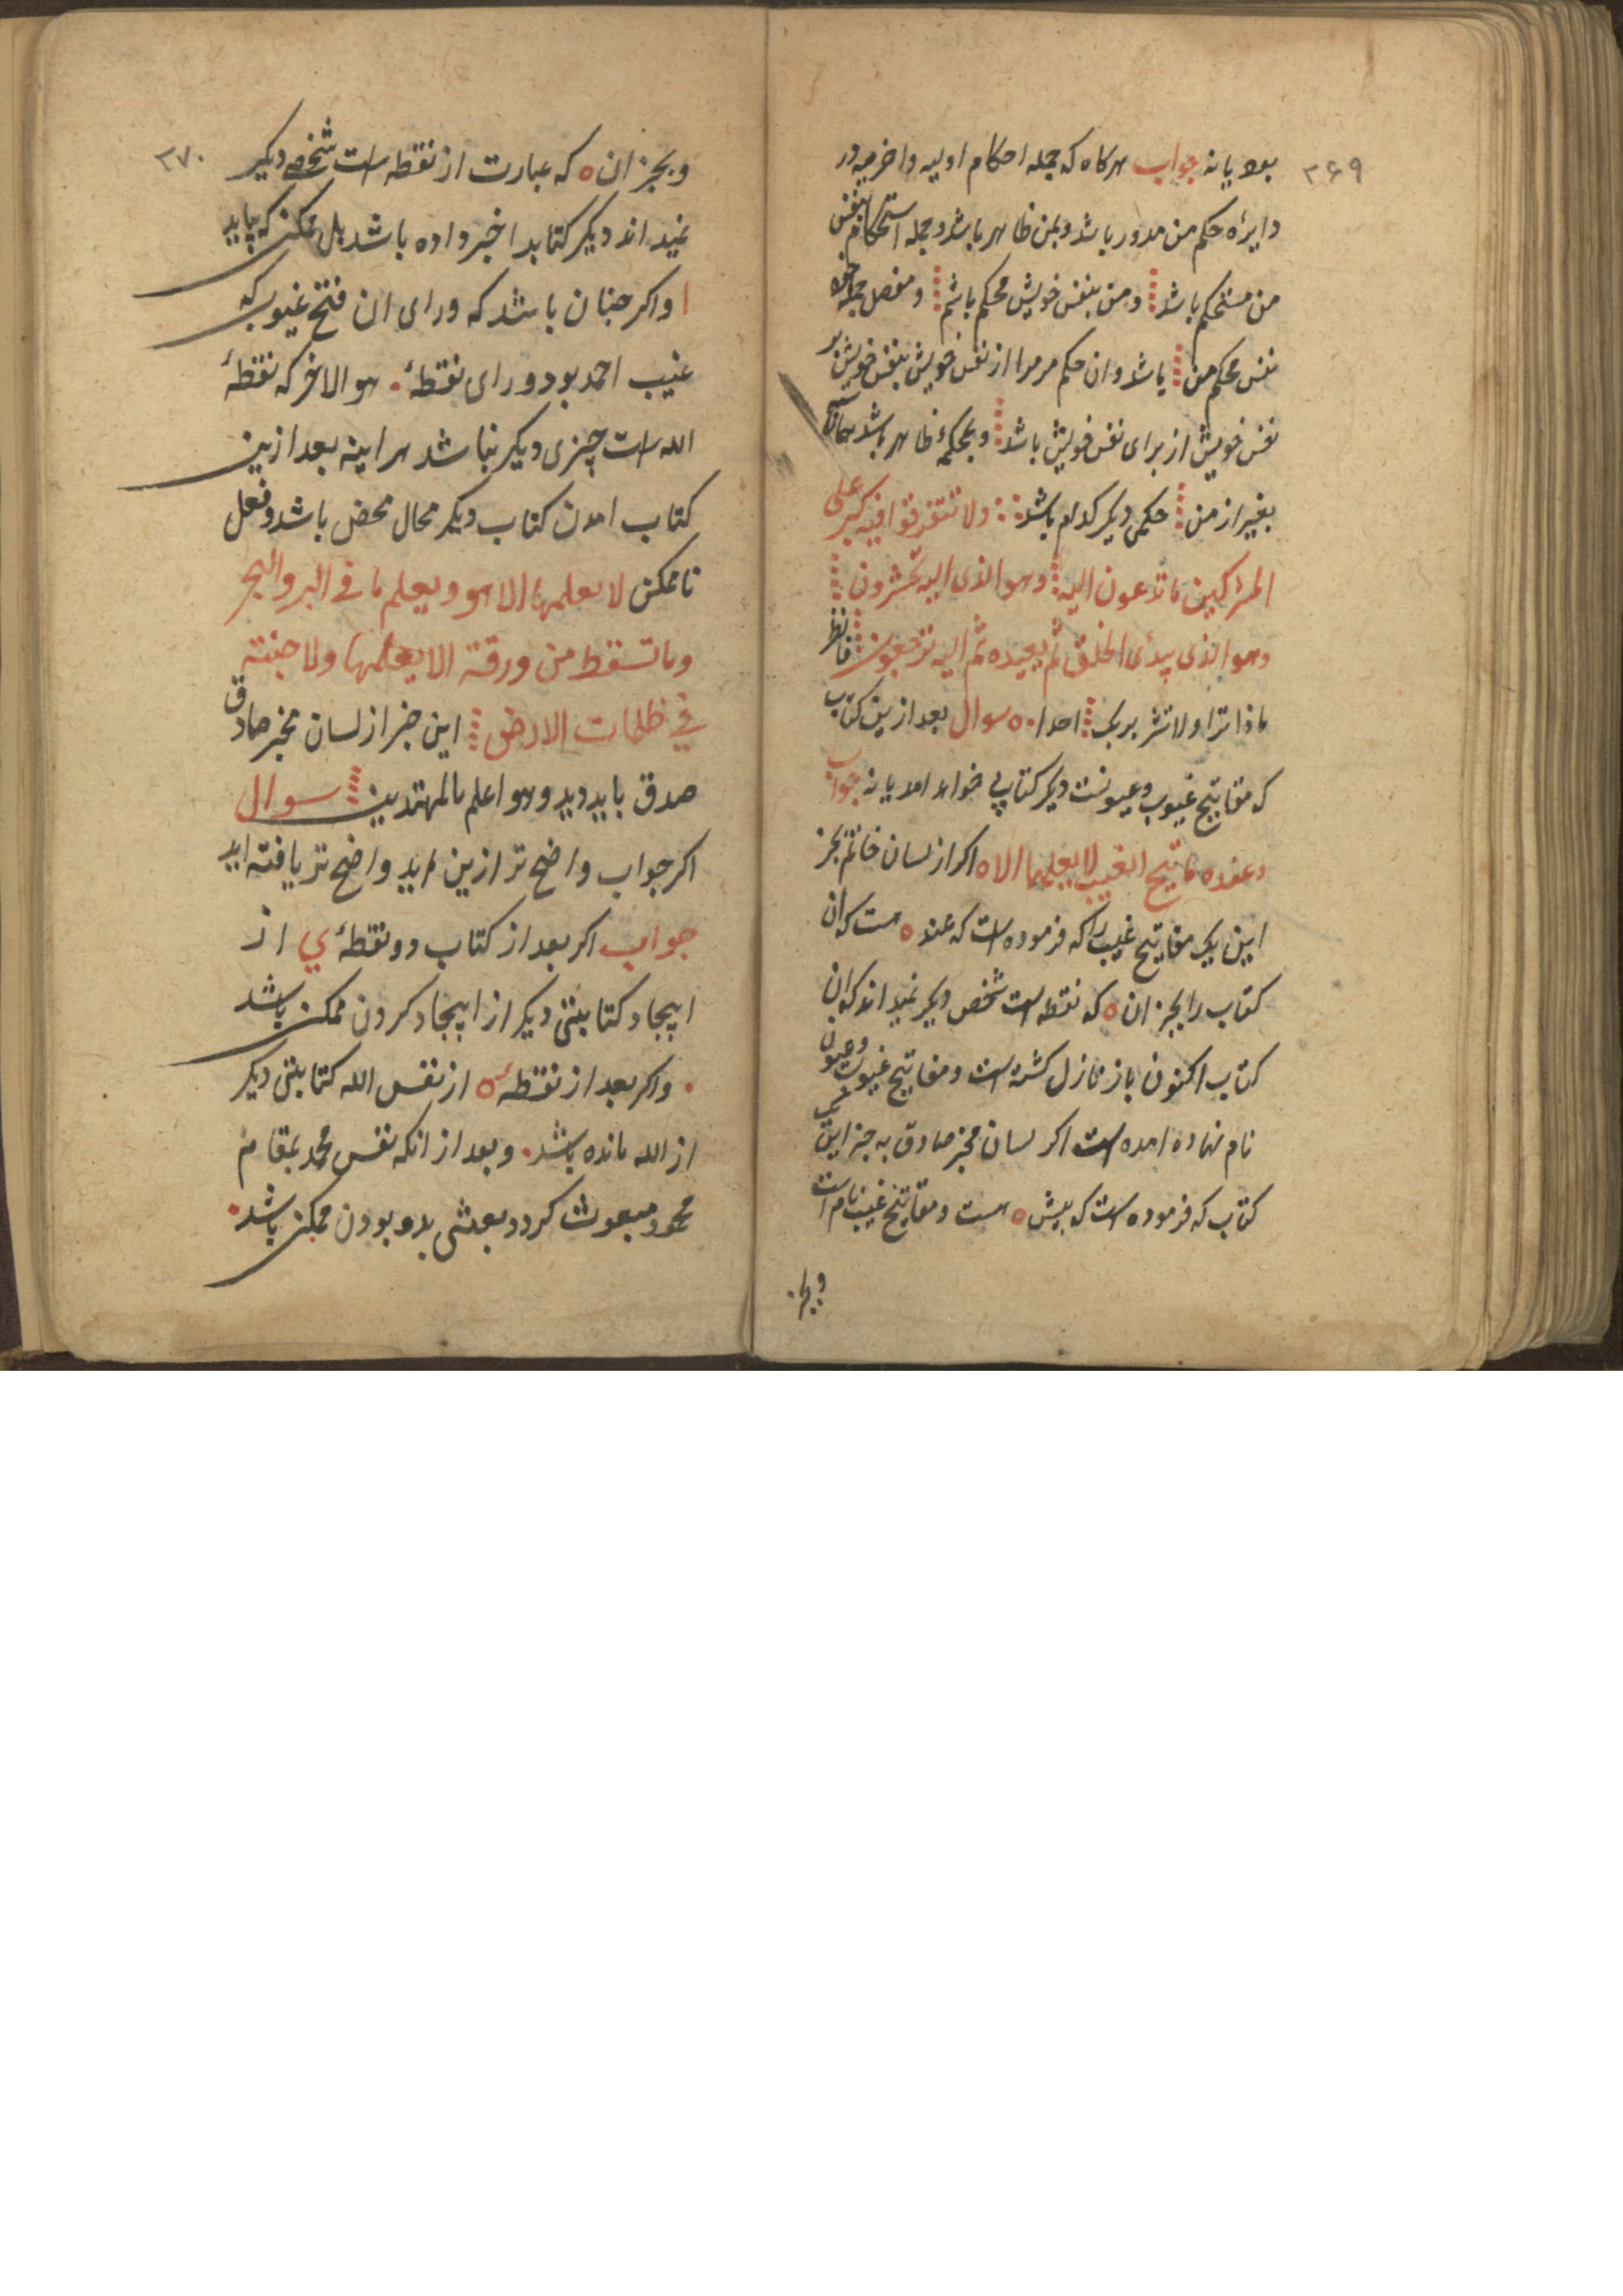 ۲۶۹
بود یا نه جواب هرکاه که جمله احکام اولیه واخریه در
دایرهٔ حکم من مدور باشد وبمن ظاهر باشد وجمله استحکام بنفس
من مستحکم باشد ومن بنفس خویش محکم باشم ومفصل جمله
نفس محکم من باشد وان حکم مر مرا از نفس خویش بنفس خویش بر
نفس خویش از برای نفس خویش باشد وبحکمهٔ ظاهر باشد
بغیر از من حکمی دیکر کدام باشد ولا تتفرقوا فیه کبر علی
المشرکین ما تدعون الیه وهو الذی الیه تحشرون
وهو الذی یبدئ الخلق ثم یعیده ثم الیه ترجعون فانظر
ماذا ترا ولا تشرک بربک احدا ٥ سوال بعد ازین کتاب
که مفاتیح غیوب وعیونست دیکر کتابی خواهد امد یا نه جواب
وعنده مفاتیح الغیب لا یعلمها الا ٥ اکر از لسان خاتم بجز
این یک مفاتیح غیب را که فرموده است که عند ٥ هست که ان
کتاب را بجز ان ٥ که نقطه است شخص دیکر نمیداند که ان
کتاب اکنون باز نازل کشته است ومفاتیح غیوب وعیون
نام نهاده امده است اکر لسان مخبر صادق به جز این
کتاب که فرموده است که پیش ٥ هست ومفاتیح غیب نام است
وبجز
۲۷۰
وبجز ان ٥ که عبارت از نقطه است شخص دیکر
نمیداند دیکر کتابرا خبر داده باشد بل ممکن که بیاید
ا واکر چنان باشد که ورای ان فتح غیوب که
غیب احمد بود ورای نقطهٔ . هو الاخر که نقطهٔ
الله است چیزی دیکر نباشد هراینه بعد ازین
کتاب امدن کتاب دیکر محال محض باشد وفعل
ناممکن لا یعلمها الا هو ویعلم ما فی البر والبحر
وما تسقط من ورقة الا یعلمها ولا حبة
فی ظلمات الارض این خبر از لسان مخبر صادق
صدق باید دید وهو اعلم بالمهتدین سوال
اکر جواب واضح تر ازین اید واضح تر یافته اید
جواب اکر بعد از کتاب دو نقطهٔ ي از
ایجاد کتابتی دیکر از ایجاد کردن ممکن باشد
. واکر بعد از نقطهٔ ٥ از نفس الله کتابتی دیکر
از الله مانده باشد . وبعد از انکه نفس محمد بمقام
محمود مبعوث کردد بعثی بدو بودن ممکن باشد .